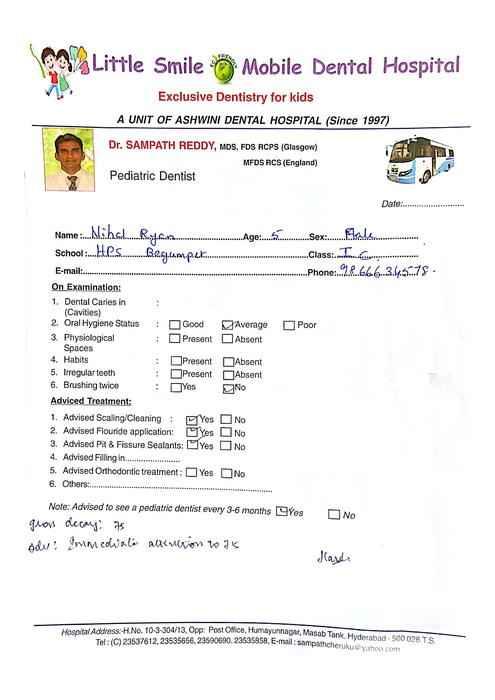 Little Smile Mobile Dental Hospital
ECO FRIENDLY
Exclusive Dentistry for kids
A UNIT OF ASHWINI DENTAL HOSPITAL (Since 1997)
Dr. SAMPATH REDDY, MDS, FDS RCPS (Glasgow)
MFDS RCS (England)
Pediatric Dentist
Date:........................
Name: Nihal Ryan Age: 5 Sex: Male
School: HPS Begumpet Class: I C
E-mail: Phone: 9866634578
On Examination:
1. Dental Caries in :
(Cavities)
2. Oral Hygiene Status : ☐ Good ☑ Average ☐ Poor
3. Physiological : ☐ Present ☐ Absent
Spaces
4. Habits : ☐ Present ☐ Absent
5. Irregular teeth : ☐ Present ☐ Absent
6. Brushing twice : ☐ Yes ☑ No
Adviced Treatment:
1. Advised Scaling/Cleaning : ☑ Yes ☐ No
2. Advised Flouride application: ☑ Yes ☐ No
3. Advised Pit & Fissure Sealants: ☑ Yes ☐ No
4. Advised Filling in........................
5. Advised Orthodontic treatment : ☐ Yes ☐ No
6. Others:........................
Note: Advised to see a pediatric dentist every 3-6 months ☑ Yes ☐ No
gross decay: 75
Adv: Immediate attention to
Hospital Address:-H.No. 10-3-304/13, Opp: Post Office, Humayunnagar, Masab Tank, Hyderabad - 500 028 T.S.
Tel : (C) 23537612, 23535656, 23590690. 23535858, E-mail : sampathcheruku@yahoo.com